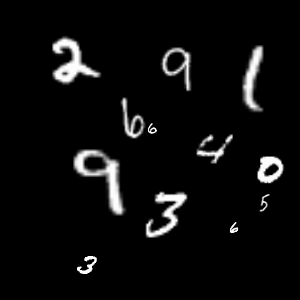 2 9 1
6 6
9 4 0
3 5
6
3